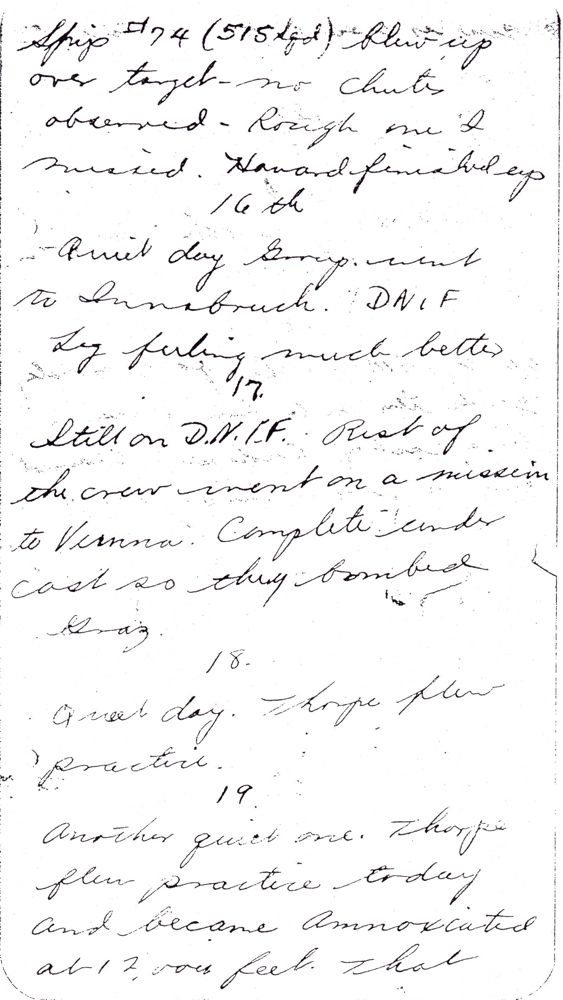 Ship #74 (515 Sqd) blew up
over target - no chutes
observed - Rough one I
missed. Howard finished up
16th
Quiet day Group went
to Innsbruck. DNIF
Leg feeling much better
17.
Still on D.N.I.F. Rest of
the crew went on a mission
to Vienna. Complete under
cast so they bombed
Graz.
18.
Quiet day. Thorpe flew
practice.
19.
Another quiet one. Thorpe
flew practice today
and became Annoxiated
at 12,000 feet. That